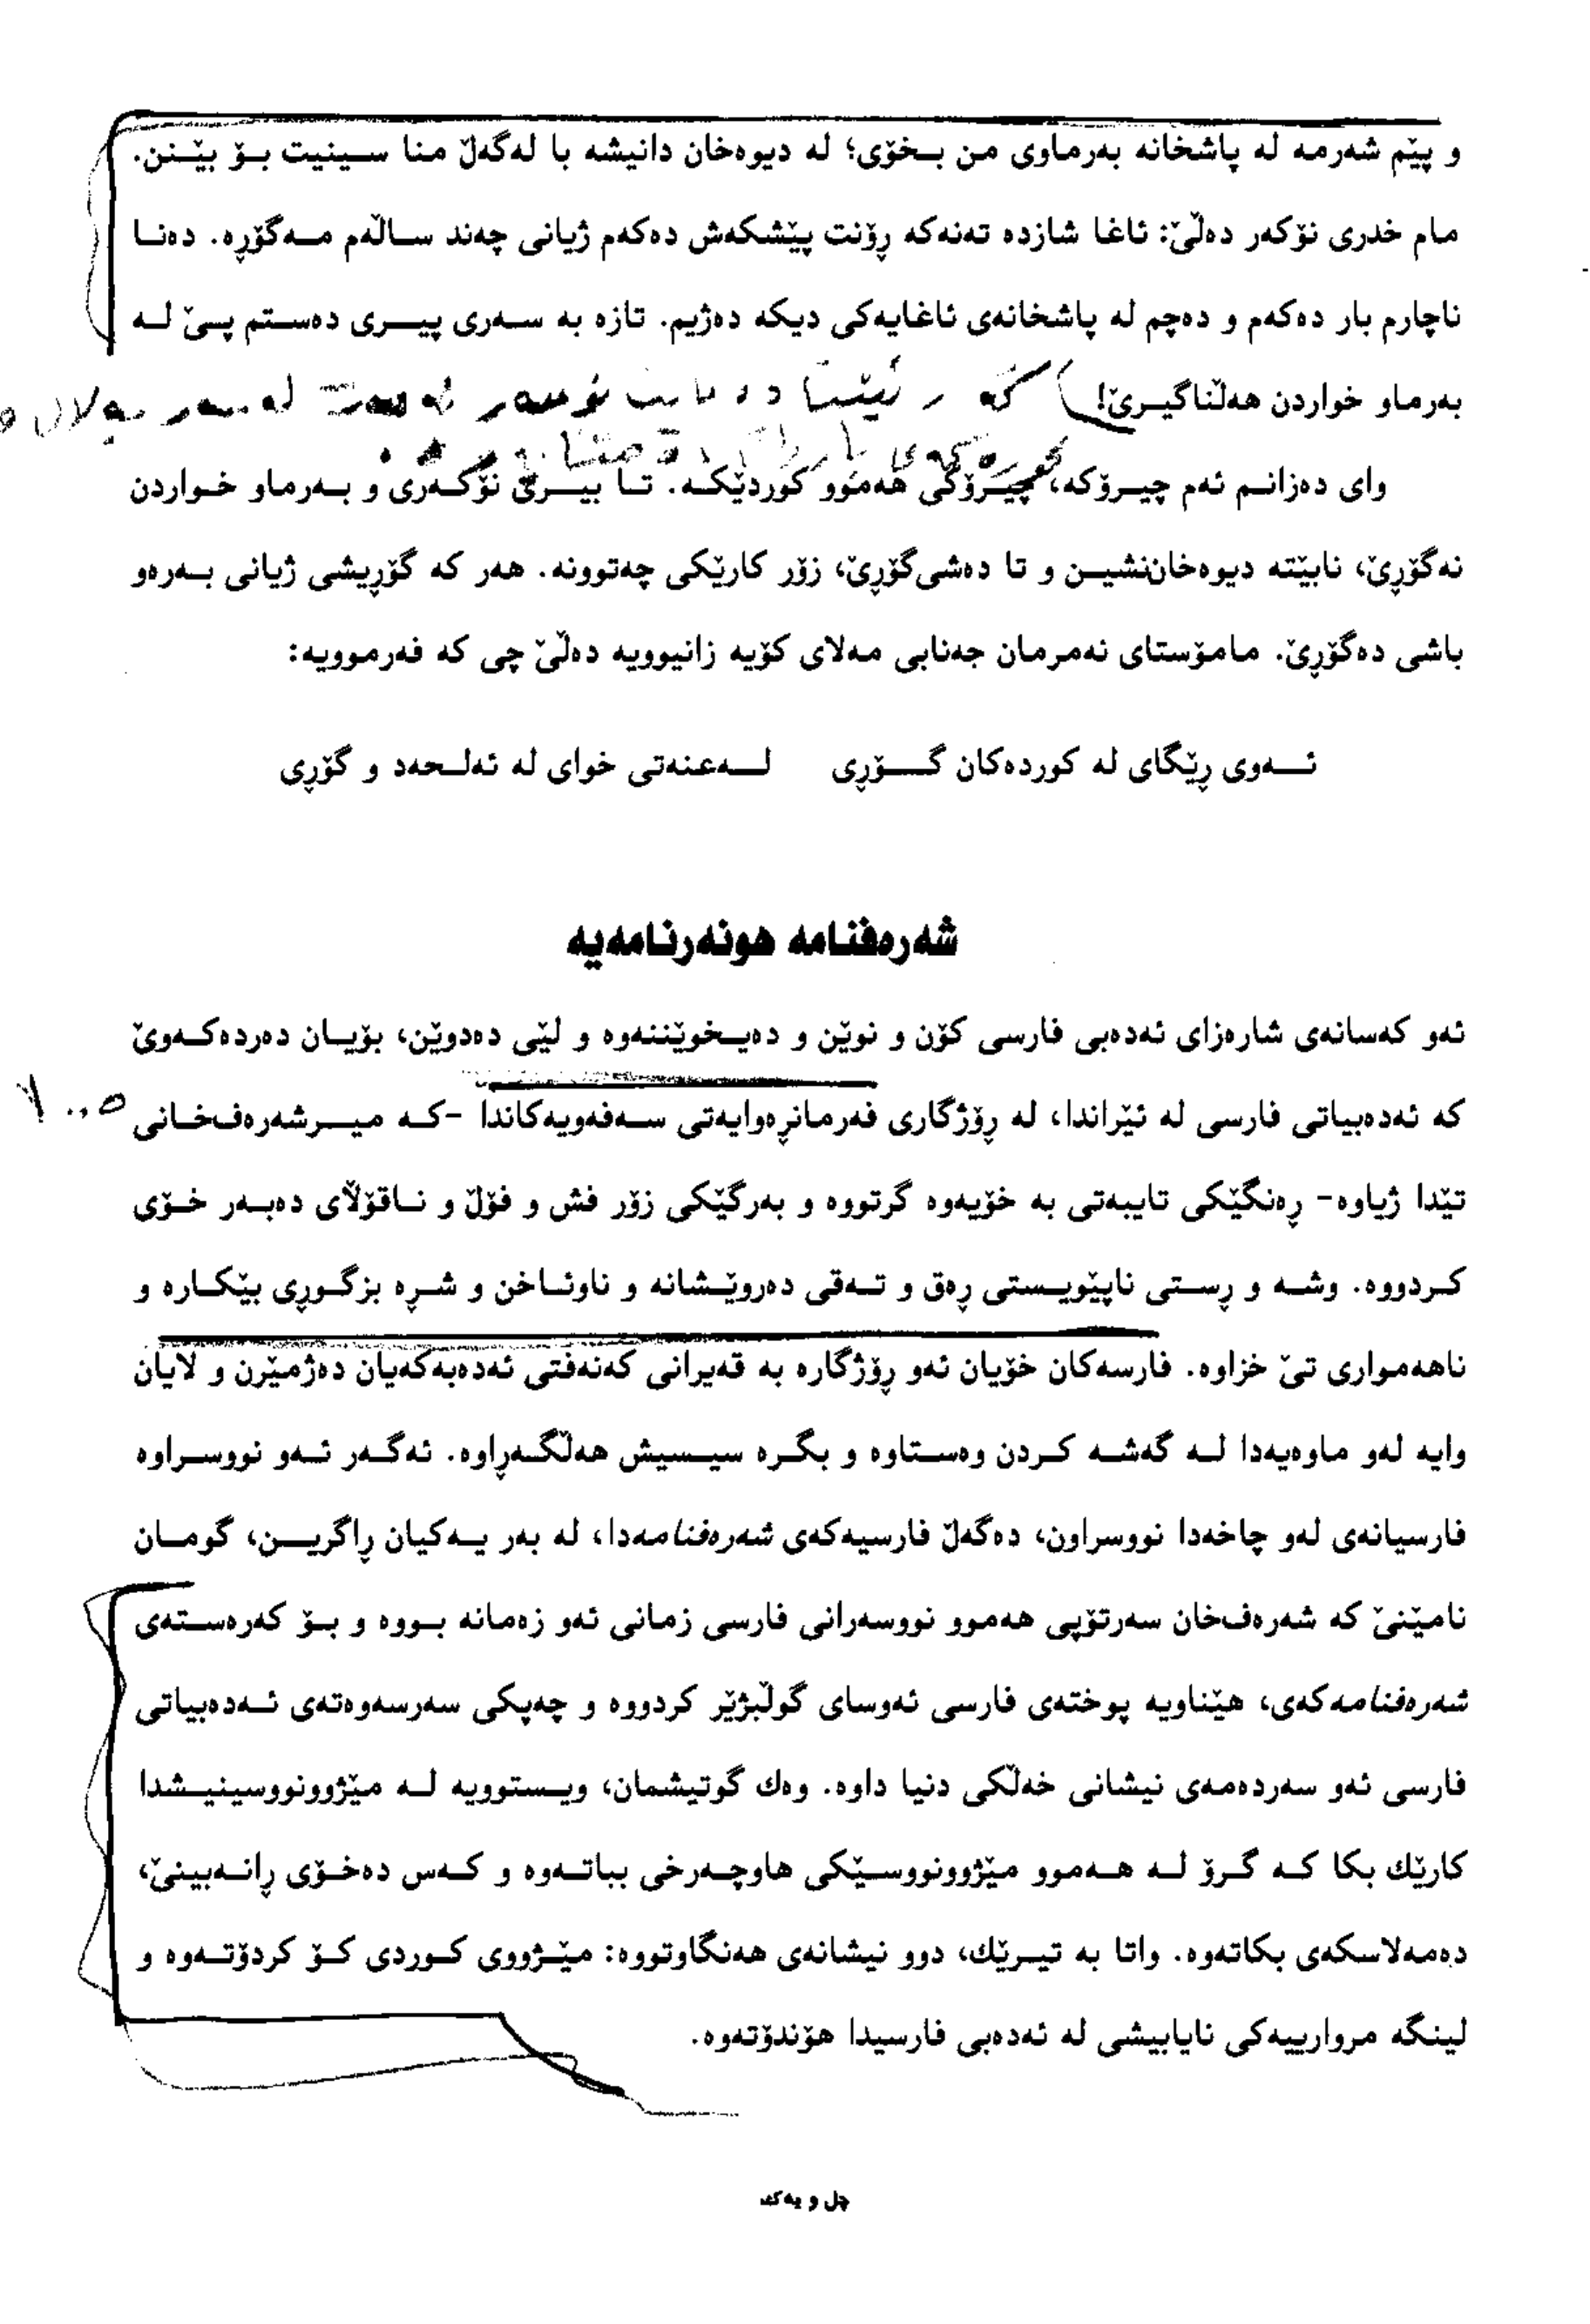 و پێم شەرمە لە پاشخانە بەرماوی من بخۆی؛ لە دیوەخان دانیشە با لەگەڵ منا سینیت بۆ بێنن.
مام خدری نۆکەر دەڵێ: ئاغا شازدە تەنەکە ڕۆنت پێشکەش دەکەم ژیانی چەند ساڵەم مەگۆڕە. دەنا
ناچارم بار دەکەم و دەچم لە پاشخانەی ئاغایەکی دیکە دەژیم. تازە بە سەری پیری دەستم پێ لە
بەرماو خواردن هەڵناگیرێ!
وای دەزانم ئەم چیرۆکە، چیرۆکی هەموو کوردێکە. تا بیری نۆکەری و بەرماو خواردن
نەگۆڕێ، نابێتە دیوەخان‌نشین و تا دەشی‌گۆڕێ، زۆر کارێکی چەتوونە. هەر کە گۆڕیشی ژیانی بەرەو
باشی دەگۆڕێ. مامۆستای نەمرمان جەنابی مەلای کۆیە زانیوویە دەڵێ چی کە فەرموویە:
ئەوی ڕێگای لە کوردەکان گۆڕی لەعنەتی خوای لە ئەلحەد و گۆڕی
شەرەفنامە هونەرنامەیە
ئەو کەسانەی شارەزای ئەدەبی فارسی کۆن و نوێن و دەیخوێننەوە و لێی دەدوێن، بۆیان دەردەکەوێ
کە ئەدەبیاتی فارسی لە ئێراندا، لە ڕۆژگاری فەرمانڕەوایەتی سەفەویەکاندا -کە میرشەرەف‌خانی
تێدا ژیاوە- ڕەنگێکی تایبەتی بە خۆیەوە گرتووە و بەرگێکی زۆر فش و فۆڵ و ناقۆڵای دەبەر خۆی
کردووە. وشە و ڕستی ناپێویستی ڕەق و تەقی دەروێشانە و ناوئاخن و شڕە بزگوڕی بێکارە و
ناهەمواری تێ خزاوە. فارسەکان خۆیان ئەو ڕۆژگارە بە قەیرانی کەنەفتی ئەدەبەکەیان دەژمێرن و لایان
وایە لەو ماوەیەدا لە گەشە کردن وەستاوە و بگرە سیسیش هەڵگەڕاوە. ئەگەر ئەو نووسراوە
فارسیانەی لەو چاخەدا نووسراون، دەگەڵ فارسیەکەی شەرەفنامەدا، لە بەر یەکیان ڕاگرین، گومان
نامێنێ کە شەرەف‌خان سەرتۆپی هەموو نووسەرانی فارسی زمانی ئەو زەمانە بووە و بۆ کەرەستەی
شەرەفنامەکەی، هێناویە پوختەی فارسی ئەوسای گوڵبژێر کردووە و چەپکی سەرسەوەتەی ئەدەبیاتی
فارسی ئەو سەردەمەی نیشانی خەڵکی دنیا داوە. وەك گوتیشمان، ویستوویە لە مێژوونووسینیشدا
کارێك بکا کە گرۆ لە هەموو مێژوونووسێکی هاوچەرخی بباتەوە و کەس دەخۆی ڕانەبینێ،
دەمەلاسکەی بکاتەوە. واتا بە تیرێك، دوو نیشانەی هەنگاوتووە: مێژووی کوردی کۆ کردۆتەوە و
لینگە مرواریيەکی نایابیشی لە ئەدەبی فارسیدا هۆندۆتەوە.
چل و یەک